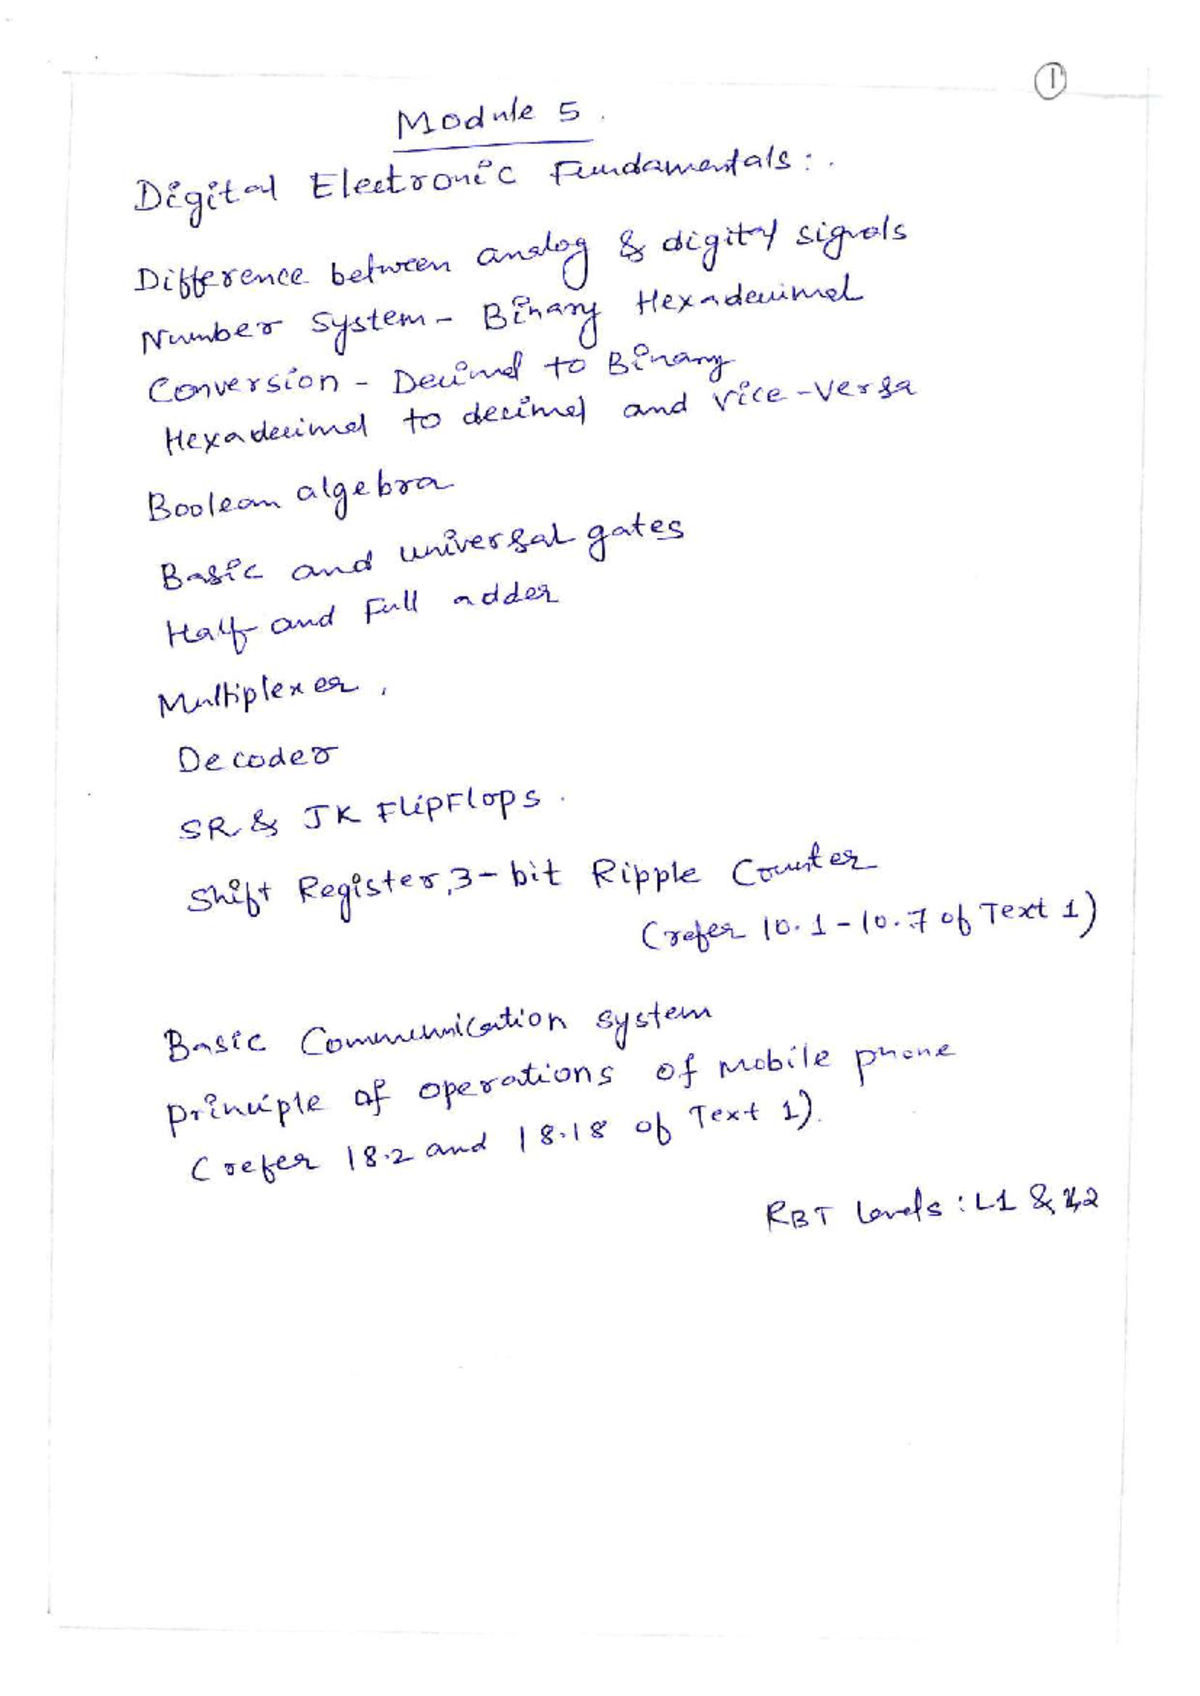 1
Module 5.
Digital Electronic Fundamentals:.
Difference between analog & digital signals
Number System - Binary Hexadecimal
Conversion - Decimal to Binary
Hexadecimal to decimal and vice-versa
Boolean algebra
Basic and universal gates
Half and Full adder
Multiplexer,
Decoder
SR & JK FlipFlops.
Shift Register, 3-bit Ripple Counter
(refer 10.1-10.7 of Text 1)
Basic Communication system
principle of operations of mobile phone
(refer 18.2 and 18.18 of Text 1).
RBT Levels: L1 & L2